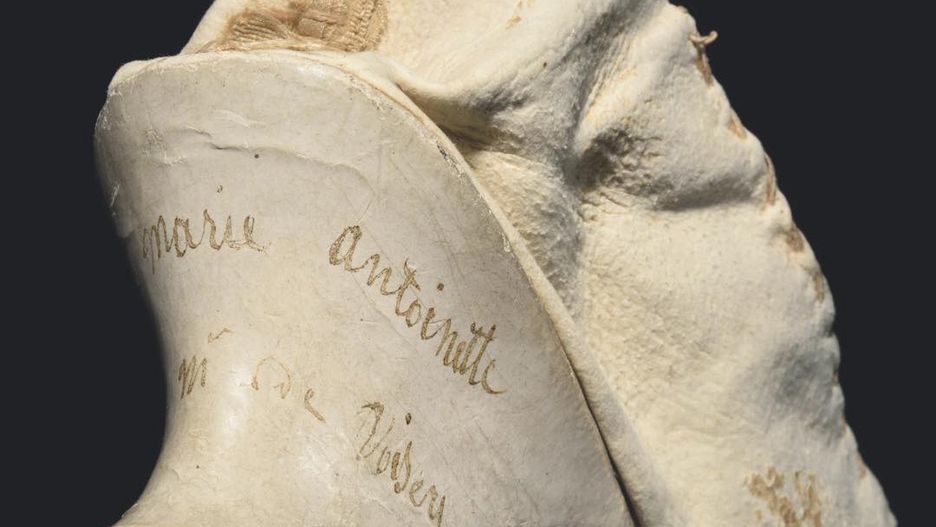 marie antoinette
mr de Voisey